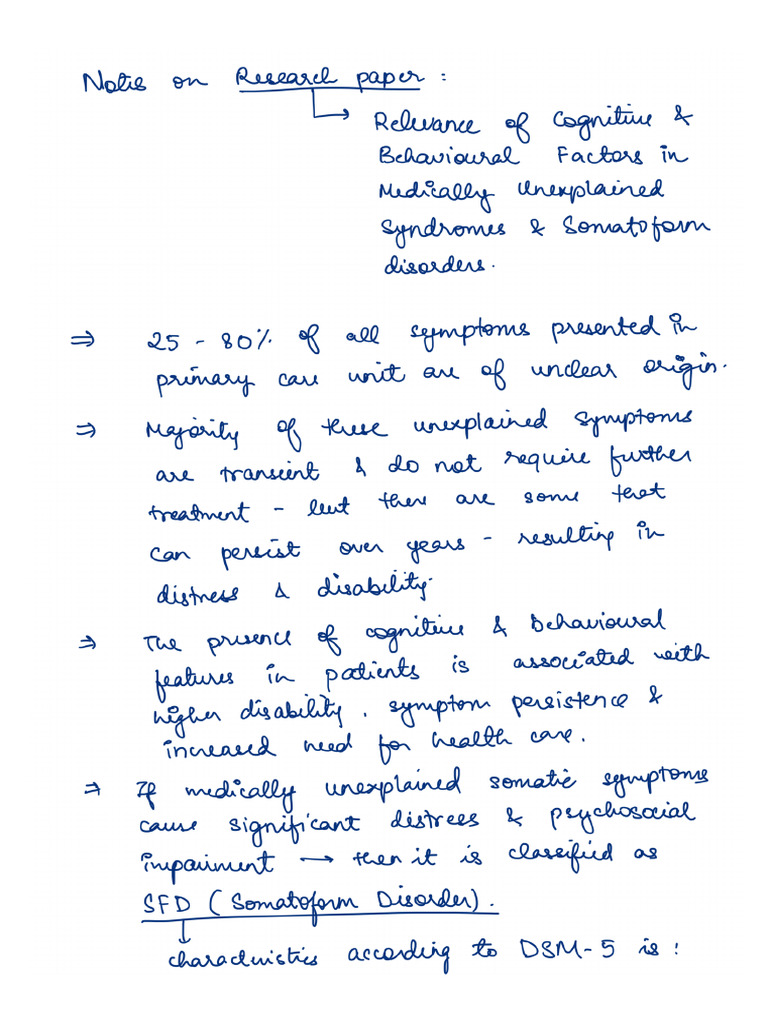 Notes on Research paper :
→ Relevance of Cognitive &
Behavioural Factors in
Medically Unexplained
Syndromes & Somatoform
disorders.
⇒ 25 - 80% of all symptoms presented in
primary care unit are of unclear origin.
⇒ Majority of these unexplained symptoms
are transient & do not require further
treatment - but there are some that
can persist over years - resulting in
distress & disability.
⇒ The presence of cognitive & Behavioural
features in patients is associated with
higher disability, symptom persistence &
increased need for health care.
⇒ If medically unexplained somatic symptoms
cause significant distress & psychosocial
impairment → then it is classified as
SFD (Somatoform Disorder).
↓
characteristics according to DSM-5 is :